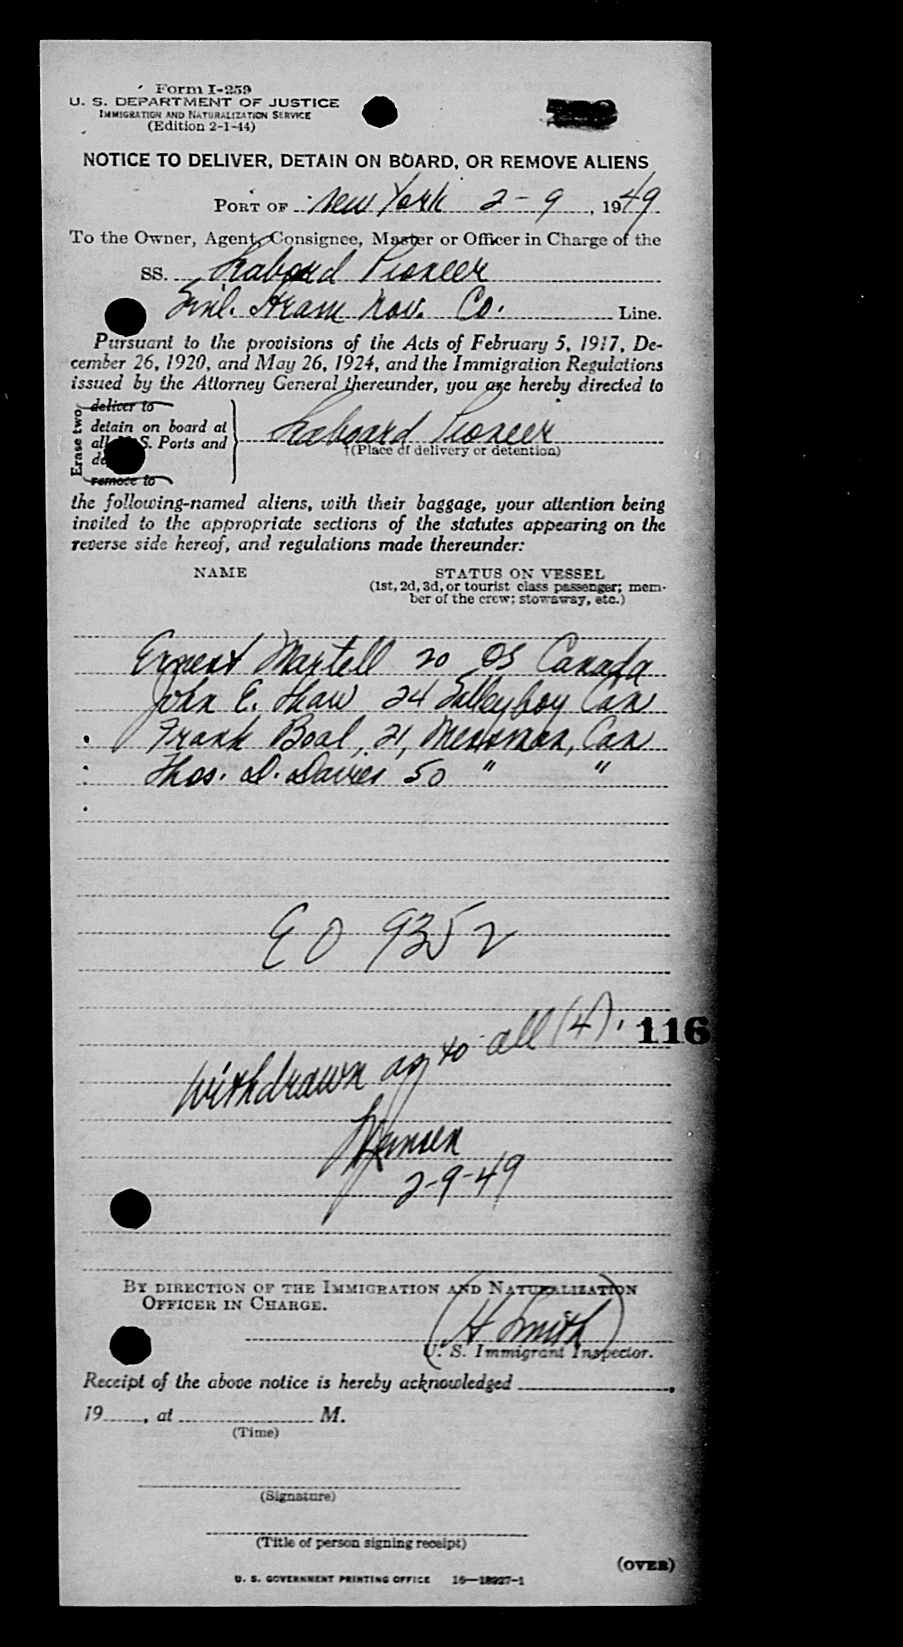 Form I-259
U. S. DEPARTMENT OF JUSTICE
IMMIGRATION AND NATURALIZATION SERVICE
(Edition 2-1-44)
NOTICE TO DELIVER, DETAIN ON BOARD, OR REMOVE ALIENS
PORT OF New York 2-9, 1949
To the Owner, Agent, Consignee, Master or Officer in Charge of the
SS. Seaboard Pioneer
Nav. Co. Line.
Pursuant to the provisions of the Acts of February 5, 1917, De-
cember 26, 1920, and May 26, 1924, and the Immigration Regulations
issued by the Attorney General thereunder, you are hereby directed to
Erase two
deliver to
detain on board at
all S. Ports and
Seaboard Pioneer
(Place of delivery or detention)
remove to
the following-named aliens, with their baggage, your attention being
invited to the appropriate sections of the statutes appearing on the
reverse side hereof, and regulations made thereunder:
NAME STATUS ON VESSEL
(1st, 2d, 3d, or tourist class passenger; mem-
ber of the crew; stowaway, etc.)
Ernest Martell 20 OS Canada
John E. Shaw 24 Galleyboy Can
Frank Boal, 21, Messman, Can
Thos. D. Davies 50 " "
EO 9352
Withdrawn as to all (4).
116
Hansen
2-9-49
BY DIRECTION OF THE IMMIGRATION AND NATURALIZATION
OFFICER IN CHARGE.
(H Smith)
U. S. Immigrant Inspector.
Receipt of the above notice is hereby acknowledged
19 , at M.
(Time)
(Signature)
(Title of person signing receipt)
(OVER)
U. S. GOVERNMENT PRINTING OFFICE 16—18927-1